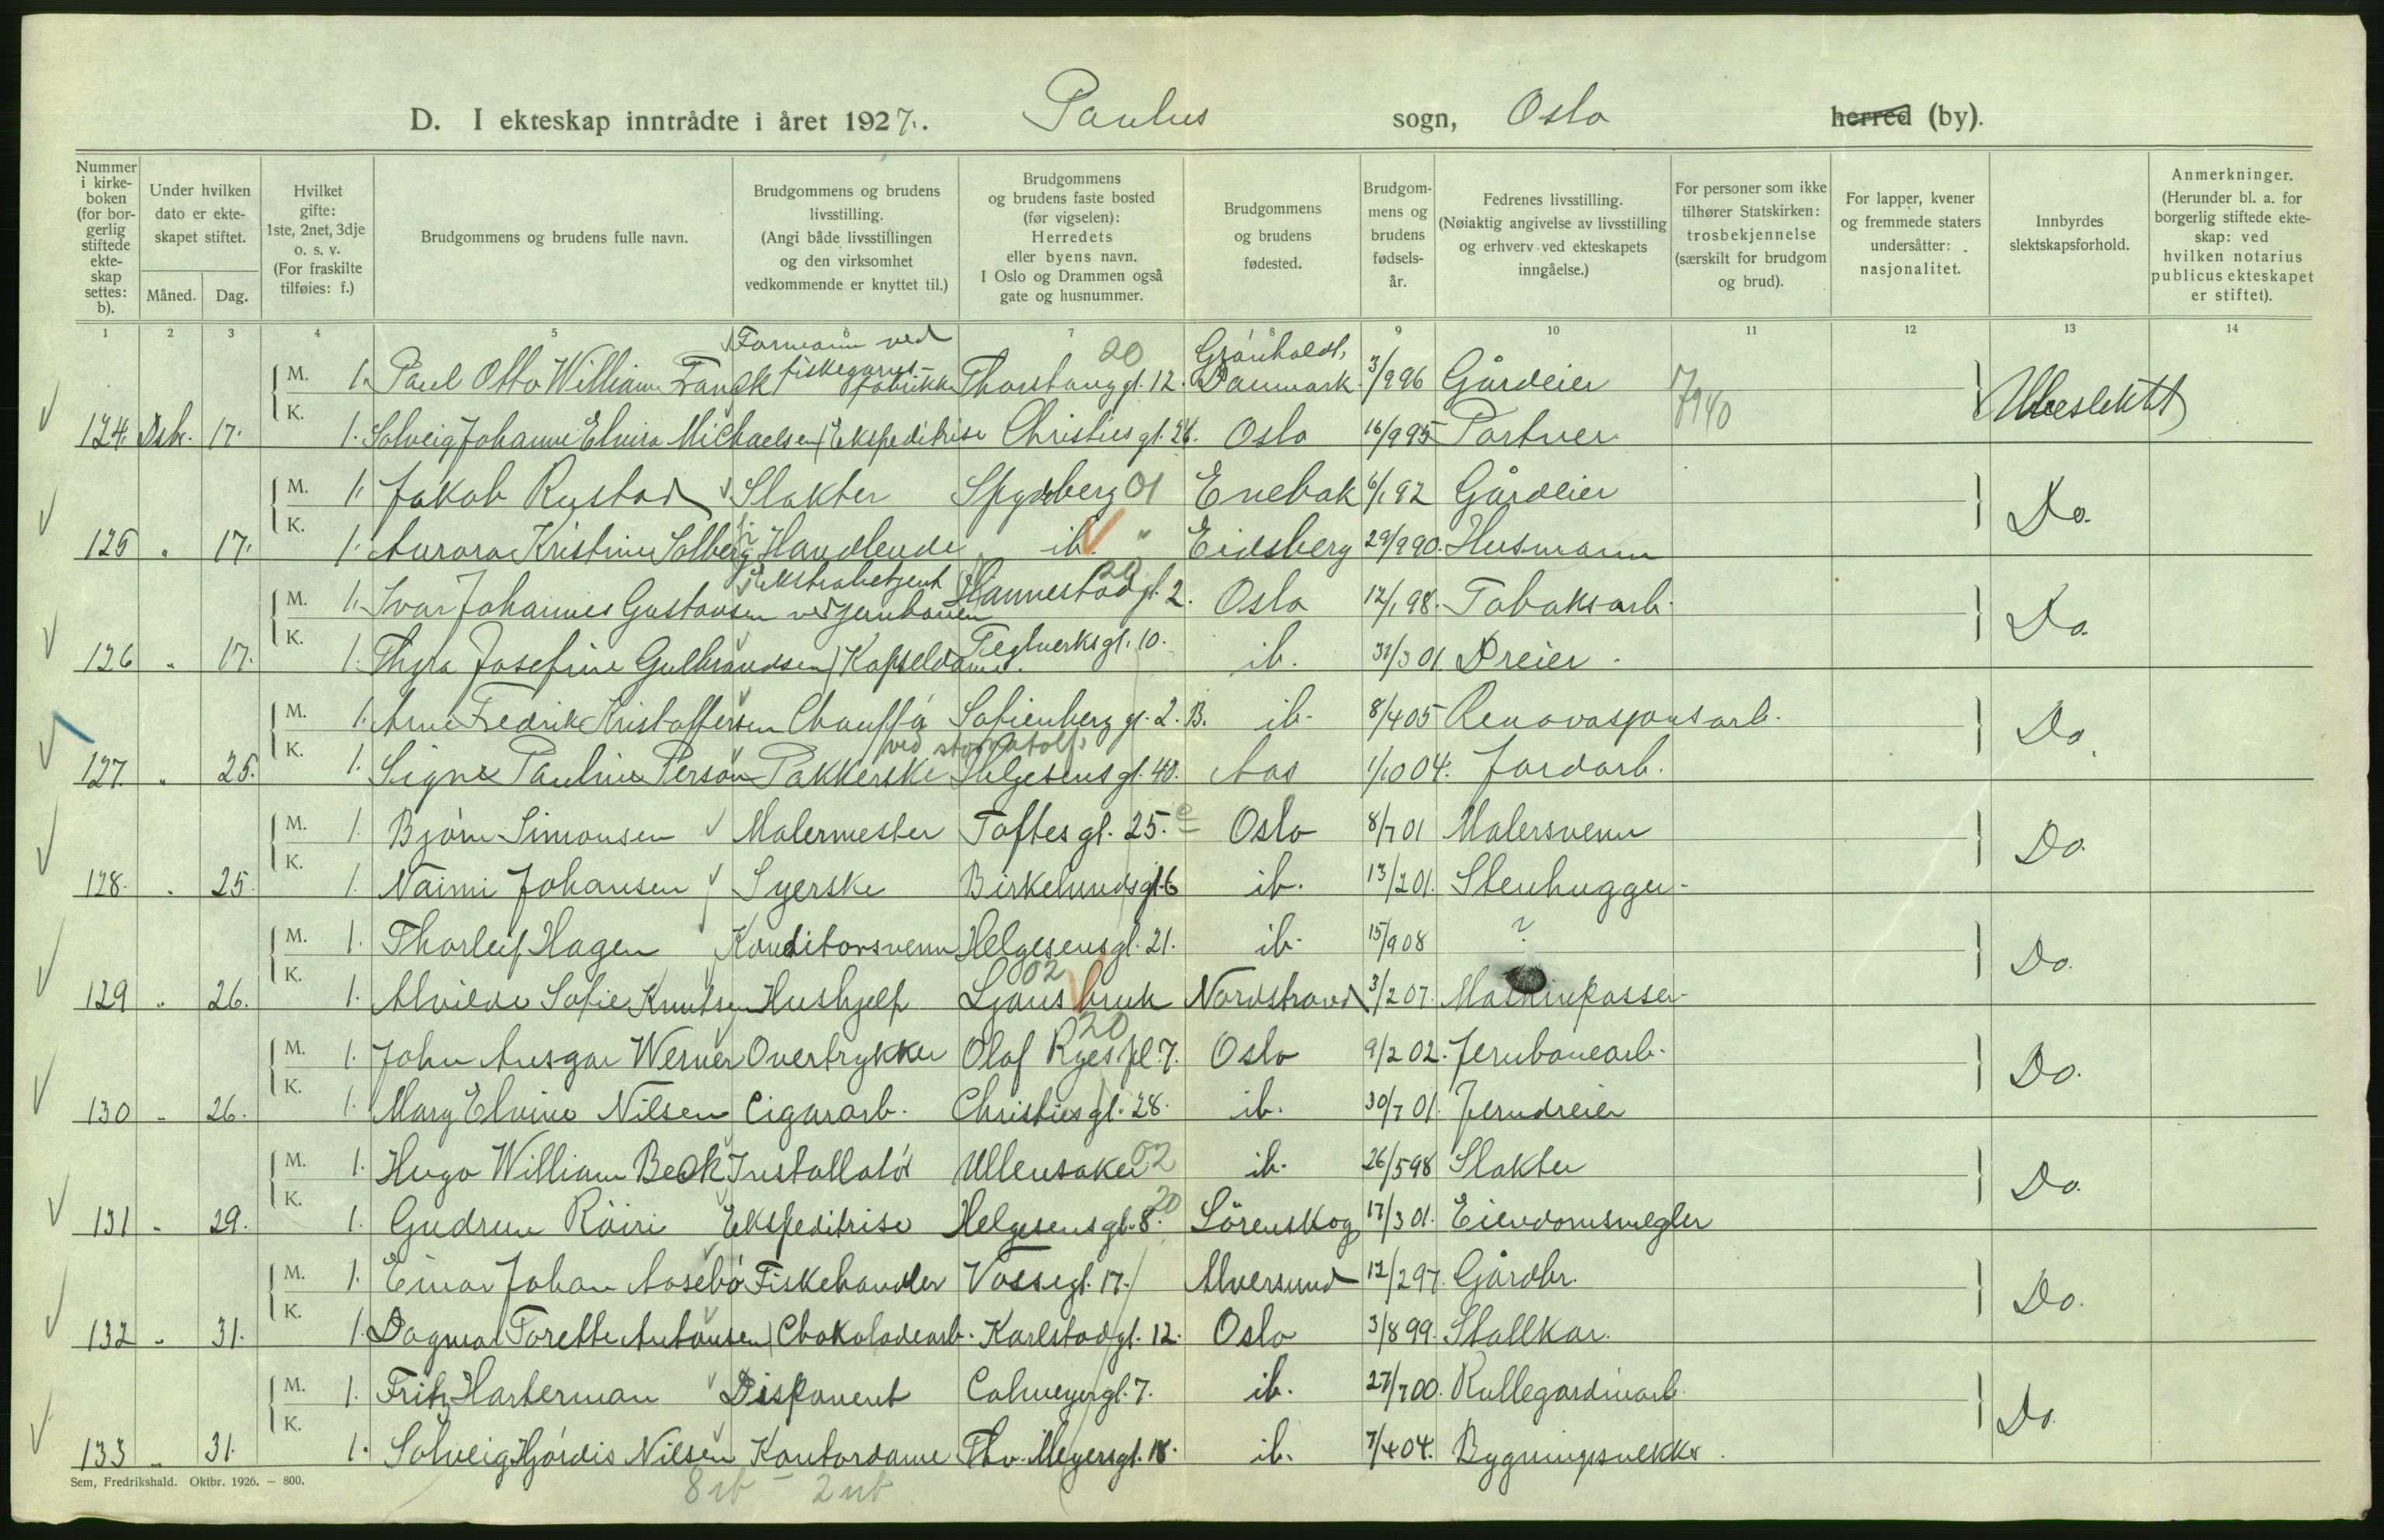 D. I ekteskap inntrådte i året 1927. Paulus sogn, Oslo herred (by).
Nummer i kirkeboken (for borgerlig stiftede ekteskap settes: b).
Under hvilken dato er ekteskapet stiftet.
Måned. Dag.
Hvilket gifte: 1ste, 2net, 3dje o. s. v. (For fraskilte tilføies: f.)
Brudgommens og brudens fulle navn.
Brudgommens og brudens livsstilling. (Angi både livsstillingen og den virksomhet vedkommende er knyttet til.)
Brudgommens og brudens faste bosted (før vigselen): Herredets eller byens navn. I Oslo og Drammen også gate og husnummer.
Brudgommens og brudens fødested.
Brudgommens og brudens fødselsår.
Fedrenes livsstilling. (Nøiaktig angivelse av livsstilling og erhverv ved ekteskapets inngåelse.)
For personer som ikke tilhører Statskirken: trosbekjennelse (særskilt for brudgom og brud).
For lapper, kvener og fremmede staters undersåtter: nasjonalitet.
Innbyrdes slektskapsforhold.
Anmerkninger. (Herunder bl. a. for borgerlig stiftede ekteskap: ved hvilken notarius publicus ekteskapet er stiftet).
1 2 3 4 5 6 7 8 9 10 11 12 13 14
Formann ved 20
M. 1. Paul Otto William Franck fiskegarnsfabrikk gt. 12. Danmark 3/9 96 Gårdeier 7940 Ubeslektet
124. Dsbr. 17. K. 1. Solveig Johanne Elvira Michaelsen Ekspeditrise Christies gt. 26. Oslo 16/9 95 Portner
M. 1. Jakob Rustad Slakter Spydeberg 01 Enebak 6/1 92 Gårdeier Do.
125 " 17. K. 1. Aurora Kristine Solberg Handlende ib. " Eidsberg 29/9 90. Husmann
Ekstrabetjent 20
M. 1. Ivar Johannes Gustavsen ved jernbanen Hannestad gt. 2. Oslo 12/1 98. Tobaksarb. Do.
126 " 17. K. 1. Thyra Josefine Gulbrandsen Kapseldame. Teglverksgt. 10. ib. 31/3 01 Dreier.
M. 1. Arne Fredrik Kristoffersen Chauffør Sofienberg gt. 2. B. ib. 8/4 05 Renovasjonsarb. Do.
127. " 25. K. 1. Signe Pauline Person Pakkerske Helgesens gt. 40. Aas 1/10 04. Jordarb.
M. 1. Bjørn Simonsen Malermester Toftes gt. 25. Oslo 8/7 01 Malersvenn Do.
128. " 25. K. 1. Naimi Johansen Syerske Birkelunds gt. 6 ib. 13/2 01. Stenhugger
M. 1. Thorleif Hagen Konditorsvenn Helgesensgt. 21. ib. 15/9 08 ? Do.
02
129 " 26. K. 1. Alvilde Sofie Knutsen Hushjelp Ljans bruk Nordstrand 3/2 07. Maskinpasser
20
M. 1. John Ansgar Werner Overtrykker Olaf Ryes pl. 7. Oslo 9/2 02. Jernbanearb. Do.
130 " 26. K. 1. Mary Elvine Nilsen Cigararb. Christies gt. 28. ib. 30/7 01. Jerndreier
M. 1. Hugo William Beck Installatør Ullensaker 02 ib. 26/5 98 Slakter Do.
131 " 29. K. 1. Gudrun Röiri Ekspeditrise Helgesens gt. 8. 20 Lörenskog 17/3 01. Eiendomsmegler
M. 1. Einar Johan Aasebö Fiskehandler Vossegt. 17. Alversund 12/2 97. Gårdbr. Do.
132 " 31. K. 1. Dagmar Torette Antonsen Chokoladearb. Karlstadgt. 12. Oslo 3/8 99. Stallkar.
M. 1. Fritz Harterman Disponent Calmeyergt. 7. ib. 27/7 00. Rullegardinarb. Do.
133 " 31. K. 1. Solveig Hjördis Nilsen Kontordame Thv. Meyersgt. 18. ib. 7/4 04. Bygningsvekker.
8 ib – 2 ub
Sem, Fredrikshald. Oktbr. 1926. – 800.